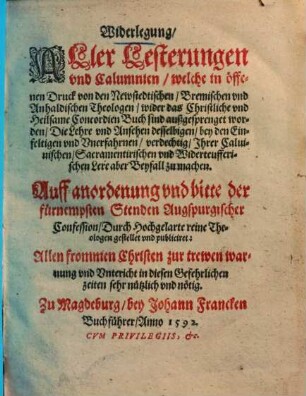 Widerlegung/
Aller Lesterungen
vnd Calumnien / welche in öffe-
nen Druck von den Newstedtischen / Bremischen vnd
Anhaldischen Theologen / wider das Christliche vnd
Heilsame Concordien Buch sind außgesprenget wor-
den / Die Lehre vnd Ansehen desselbigen / bey den Ein-
feltigen vnd Vnerfahrnen / verdechtig / Ihrer Calui-
nischen / Sacramentirischen vnd Widerteufferi-
schen Lere aber Beyfall zu machen.
Auff anordenung vnd bitte der
fürnempsten Stenden Augspurgischer
Confession / Durch Hochgelarte reine The-
ologen gestellet vnd publiciret:
Allen frommen Christen zur trewen war-
nung vnd Vnterricht in diesen Gefehrlichen
zeiten sehr nützlich vnd nötig.
Zu Magdeburg / bey Johann Francken
Buchführer / Anno 1592.
CVM PRIVILEGIIS, &c.